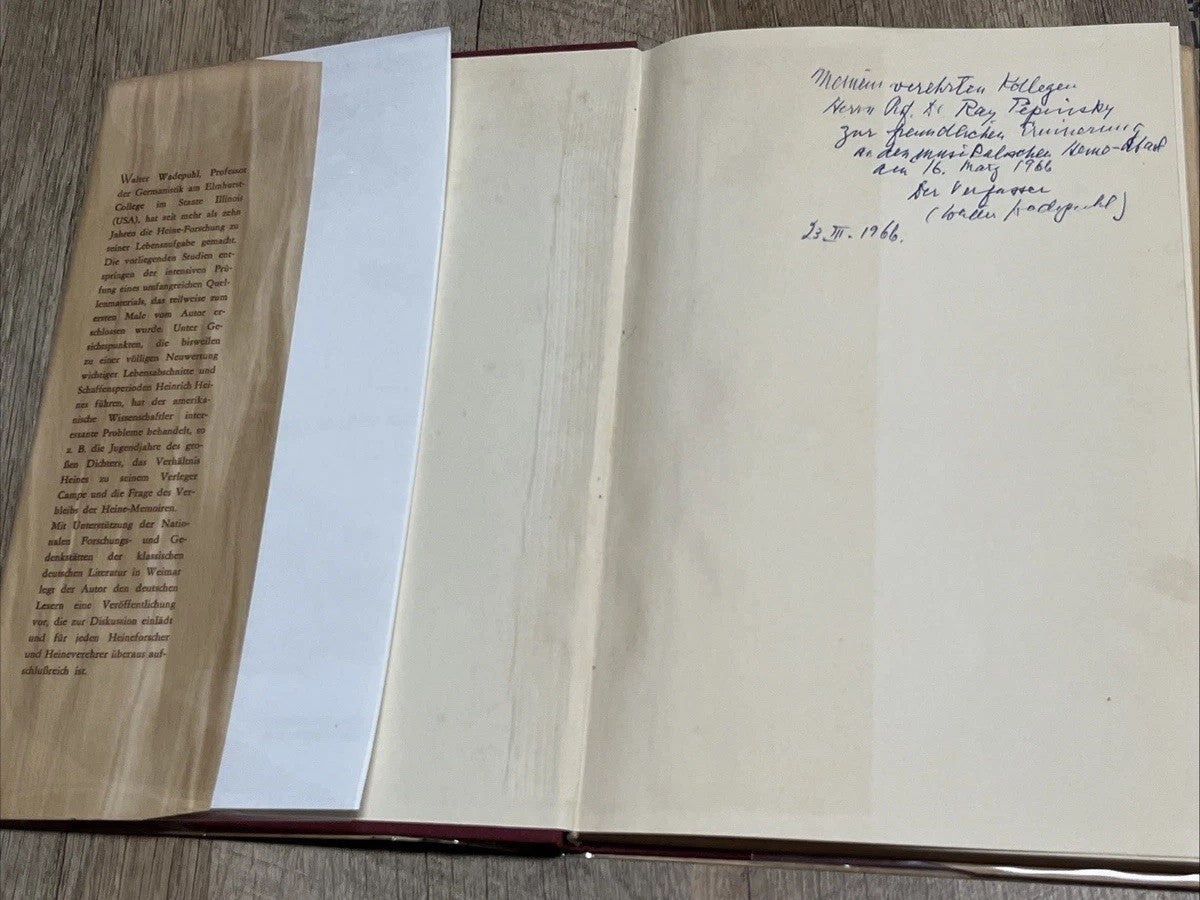 Walter Wadepuhl, Professor
der Germanistik am Elmhurst-
College im Staate Illinois
(USA), hat seit mehr als zehn
Jahren die Heine-Forschung zu
seiner Lebensaufgabe gemacht.
Die vorliegenden Studien ent-
springen der intensiven Prü-
fung eines umfangreichen Quel-
lenmaterials, das teilweise zum
ersten Male vom Autor er-
schlossen wurde. Unter Ge-
sichtspunkten, die bisweilen
zu einer völligen Neuwertung
wichtiger Lebensabschnitte und
Schaffensperioden Heinrich Hei-
nes führen, hat der amerika-
nische Wissenschaftler inter-
essante Probleme behandelt, so
z. B. die Jugendjahre des gro-
ßen Dichters, das Verhältnis
Heines zu seinem Verleger
Campe und die Frage des Ver-
bleibs der Heine-Memoiren.
Mit Unterstützung der Natio-
nalen Forschungs- und Ge-
denkstätten der klassischen
deutschen Literatur in Weimar
legt der Autor den deutschen
Lesern eine Veröffentlichung
vor, die zur Diskussion einlädt
und für jeden Heineforscher
und Heineverehrer überaus auf-
schlußreich ist.
Meinem verehrten Kollegen
Herrn Prof. Dr Ray Pepinsky
zur freundlichen Erinnerung
an den musikalischen
am 16. März 1966
Der Verfasser
(Walter Wadepuhl)
23 III. 1966.